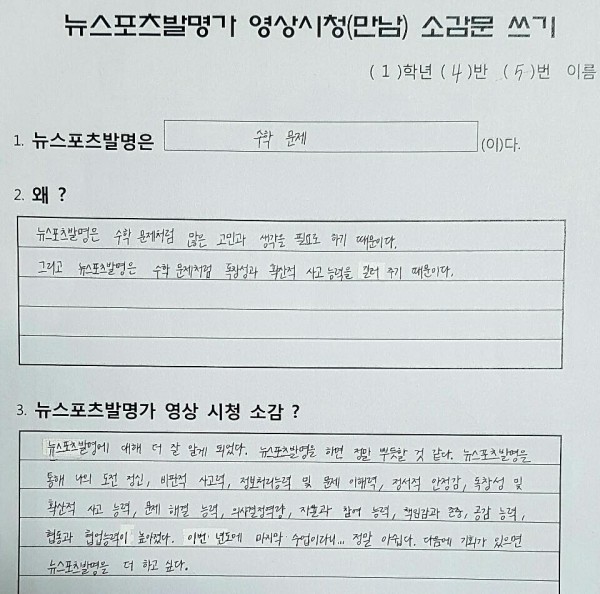 뉴스포츠발명가 영상시청(만남) 소감문 쓰기
( 1 )학년 ( 4 )반 ( 5 )번 이름
1. 뉴스포츠발명은 수학 문제 (이)다.
2. 왜 ?
뉴스포츠발명은 수학 문제처럼 많은 고민과 생각을 필요로 하기 때문이다.
그리고 뉴스포츠발명은 수학 문제처럼 독창성과 확산적 사고 능력을 길러 주기 때문이다.
3. 뉴스포츠발명가 영상 시청 소감 ?
뉴스포츠발명에 대해 더 잘 알게 되었다. 뉴스포츠발명을 하면 정말 뿌듯할 것 같다. 뉴스포츠발명을
통해 나의 도전 정신, 비판적 사고력, 정보처리능력 및 문제 이해력, 정서적 안정감, 독창성 및
확산적 사고 능력, 문제 해결 능력, 의사결정역량, 자율과 참여 능력, 책임감과 존중, 공감 능력,
협동과 협업능력이 높아졌다. 이번 년도에 마지막 수업이라니... 정말 아쉽다. 다음에 기회가 있으면
뉴스포츠발명을 더 하고 싶다.